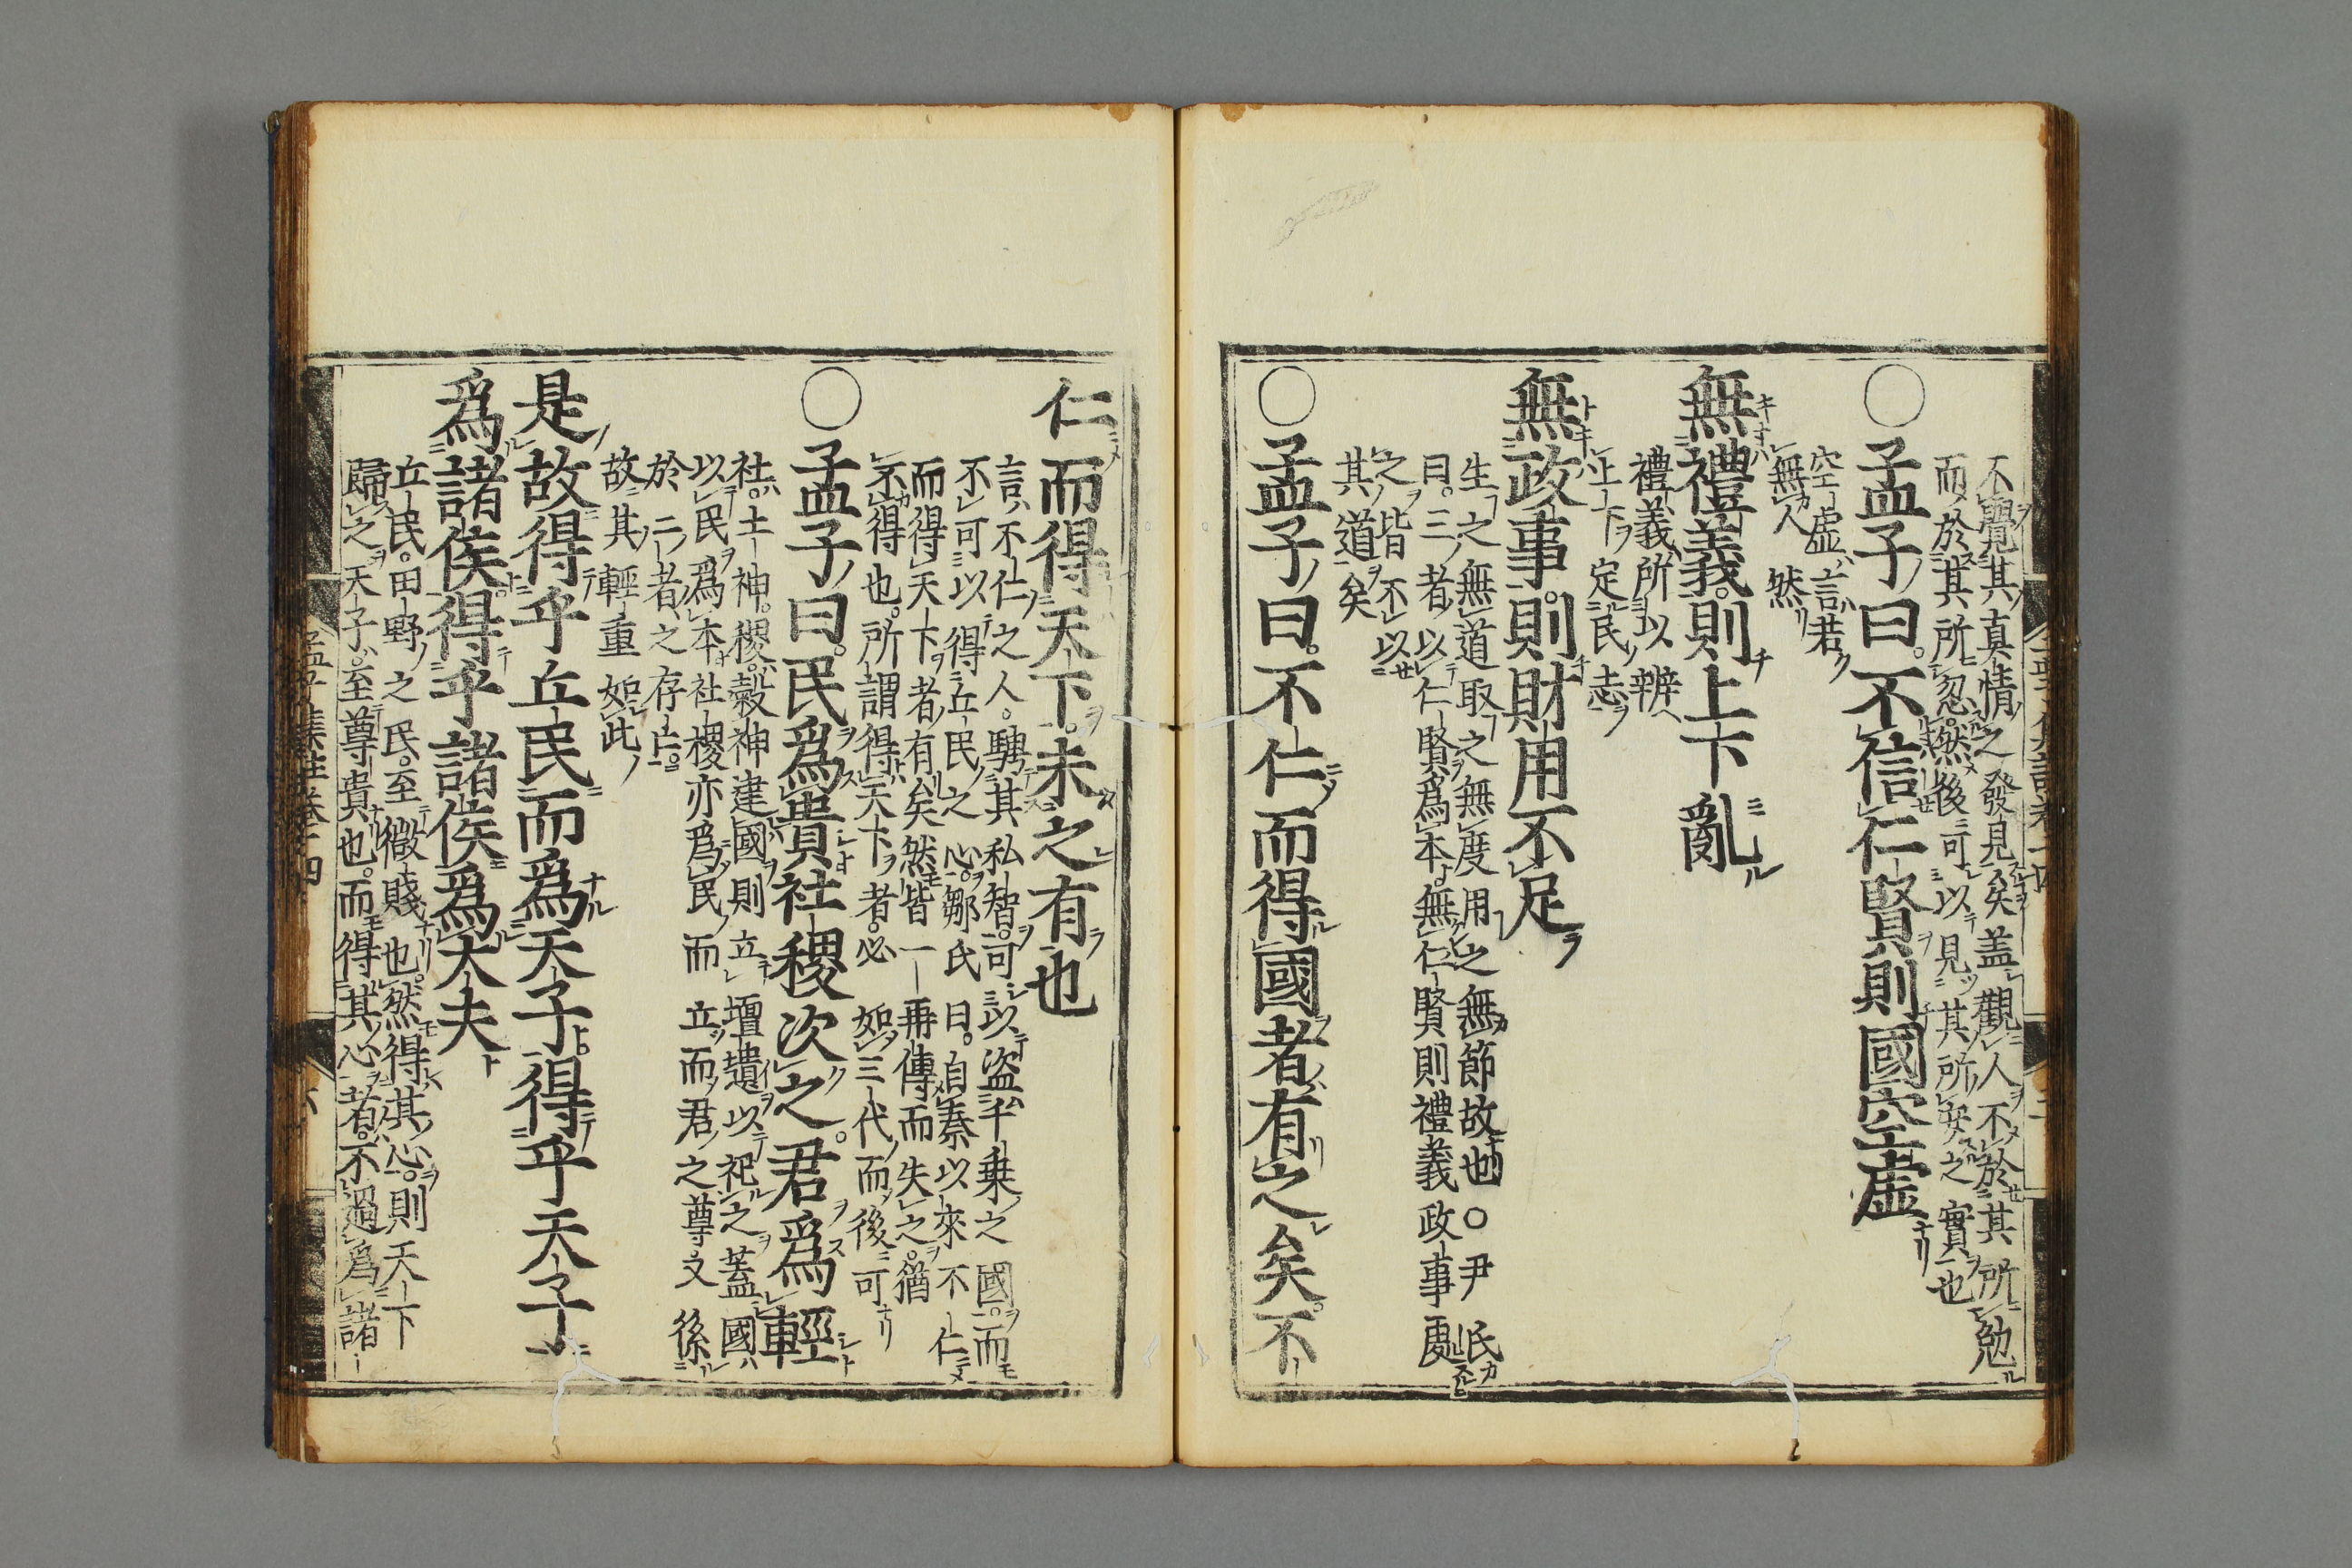 不覺其真情之發見矣盖觀人不於其所勉
而於其所忽然後可以見其所安之實也
○孟子曰不信仁賢則國空虛
空虛言若
無人然
無禮義則上下亂
禮義所以辨
上下定民志
無政事則財用不足
生之無道取之無度用之無節故也○尹氏
曰三者以仁賢爲本無仁賢則禮義政事處
之皆不以
其道矣
○孟子曰不仁而得國者有之矣不
仁而得天下未之有也
言不仁之人騁其私智可以盗千乗之國而
不可以得丘民之心鄒氏曰自秦以來不仁
而得天下者有矣然皆一再傳而失之猶
不得也所謂得天下者必如三代而後可
○孟子曰民爲貴社稷次之君爲輕
社土神稷穀神建國則立壇壝以祀之蓋國
以民爲本社稷亦爲民而立而君之尊又係
於二者之存亡
故其輕重如此
是故得乎丘民而爲天子得乎天子
爲諸侯得乎諸侯爲大夫
丘民田野之民至微賤也然得其心則天下
歸之天子至尊貴也而得其心者不過爲諸
孟子集註卷十四